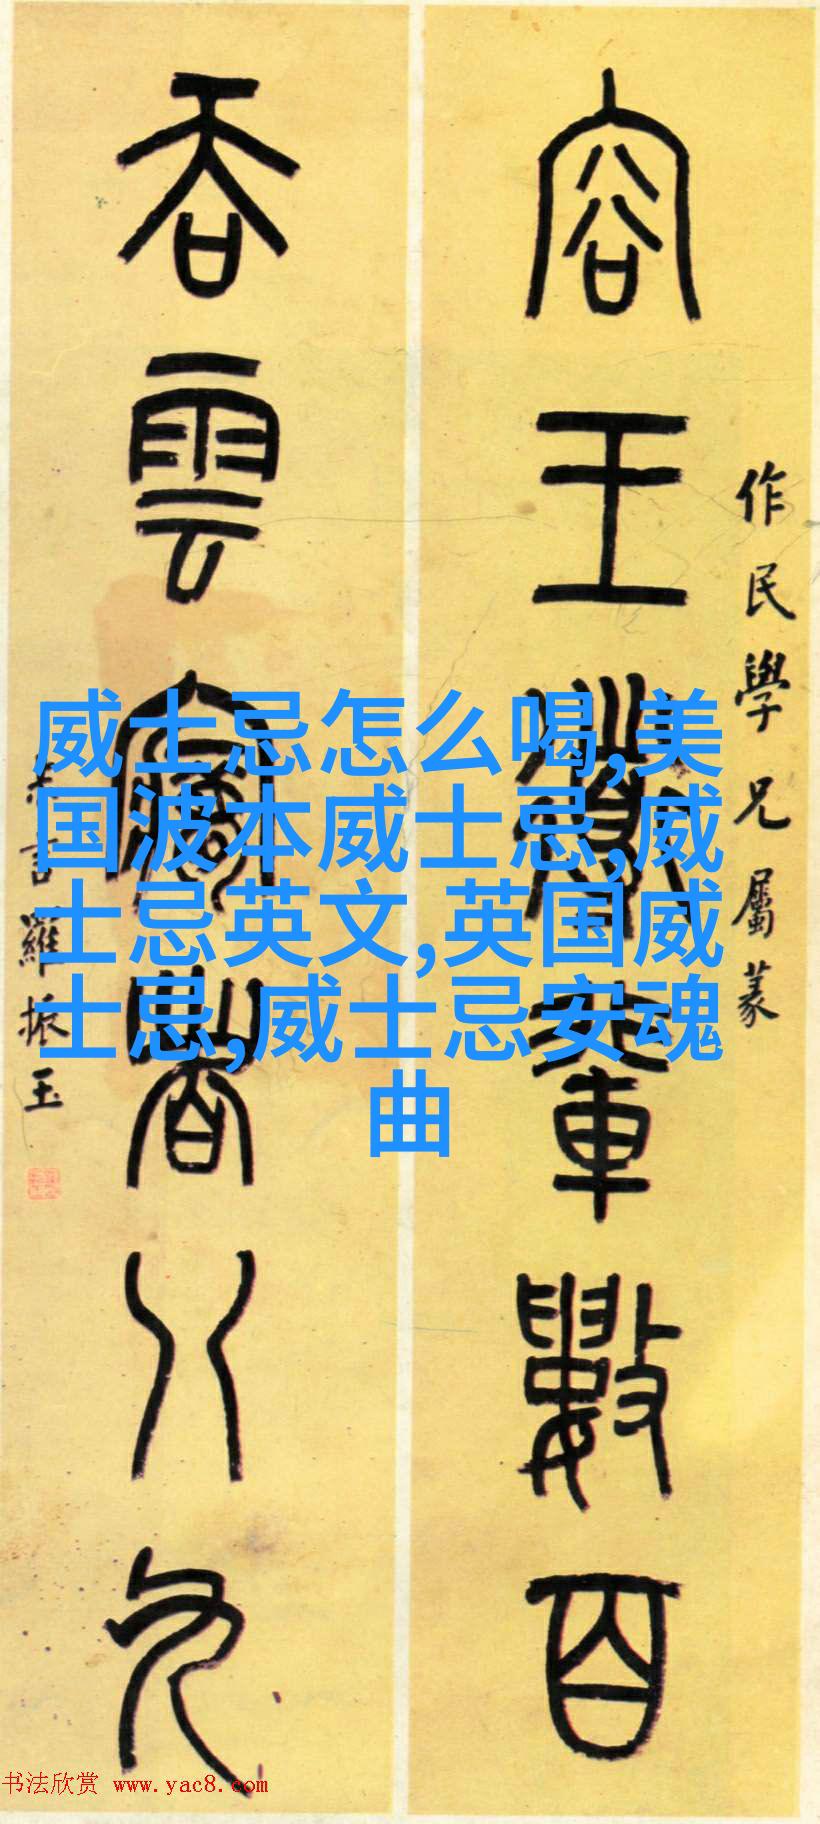 作民學兄屬篆
容王輦數百
吞雲夢者八九
羅振玉
威士忌怎么喝,美
国波本威士忌,威
士忌英文,英国威
士忌,威士忌安魂
曲
书法欣赏 www.yac8.com